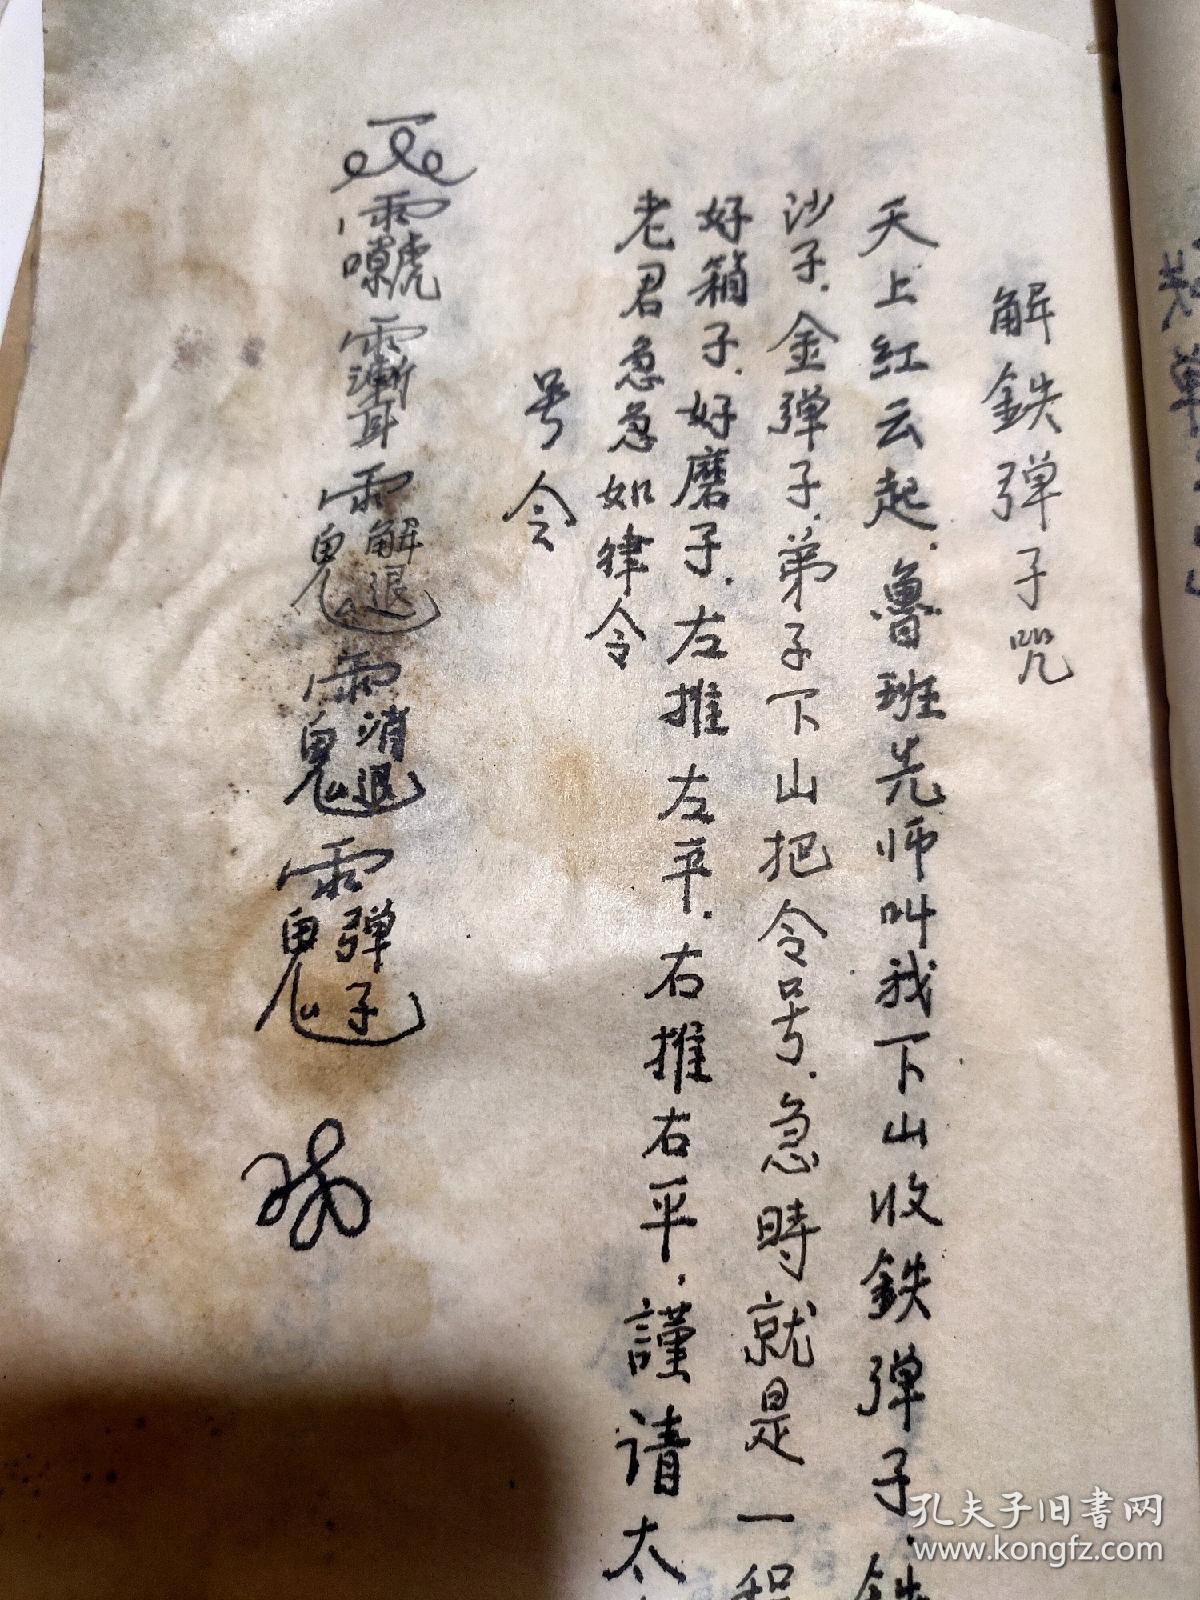 解鉄弹子咒
天上红云起.魯班先师叫我下山收鉄弹子.鉄
沙子.金弹子.弟子下山把令号.急時就是一
好箱子.好磨子.左推左平.右推右平.謹请太
老君急急如律令
号令
解退
消退
弹子
孔夫子旧书网
www.kongfz.com